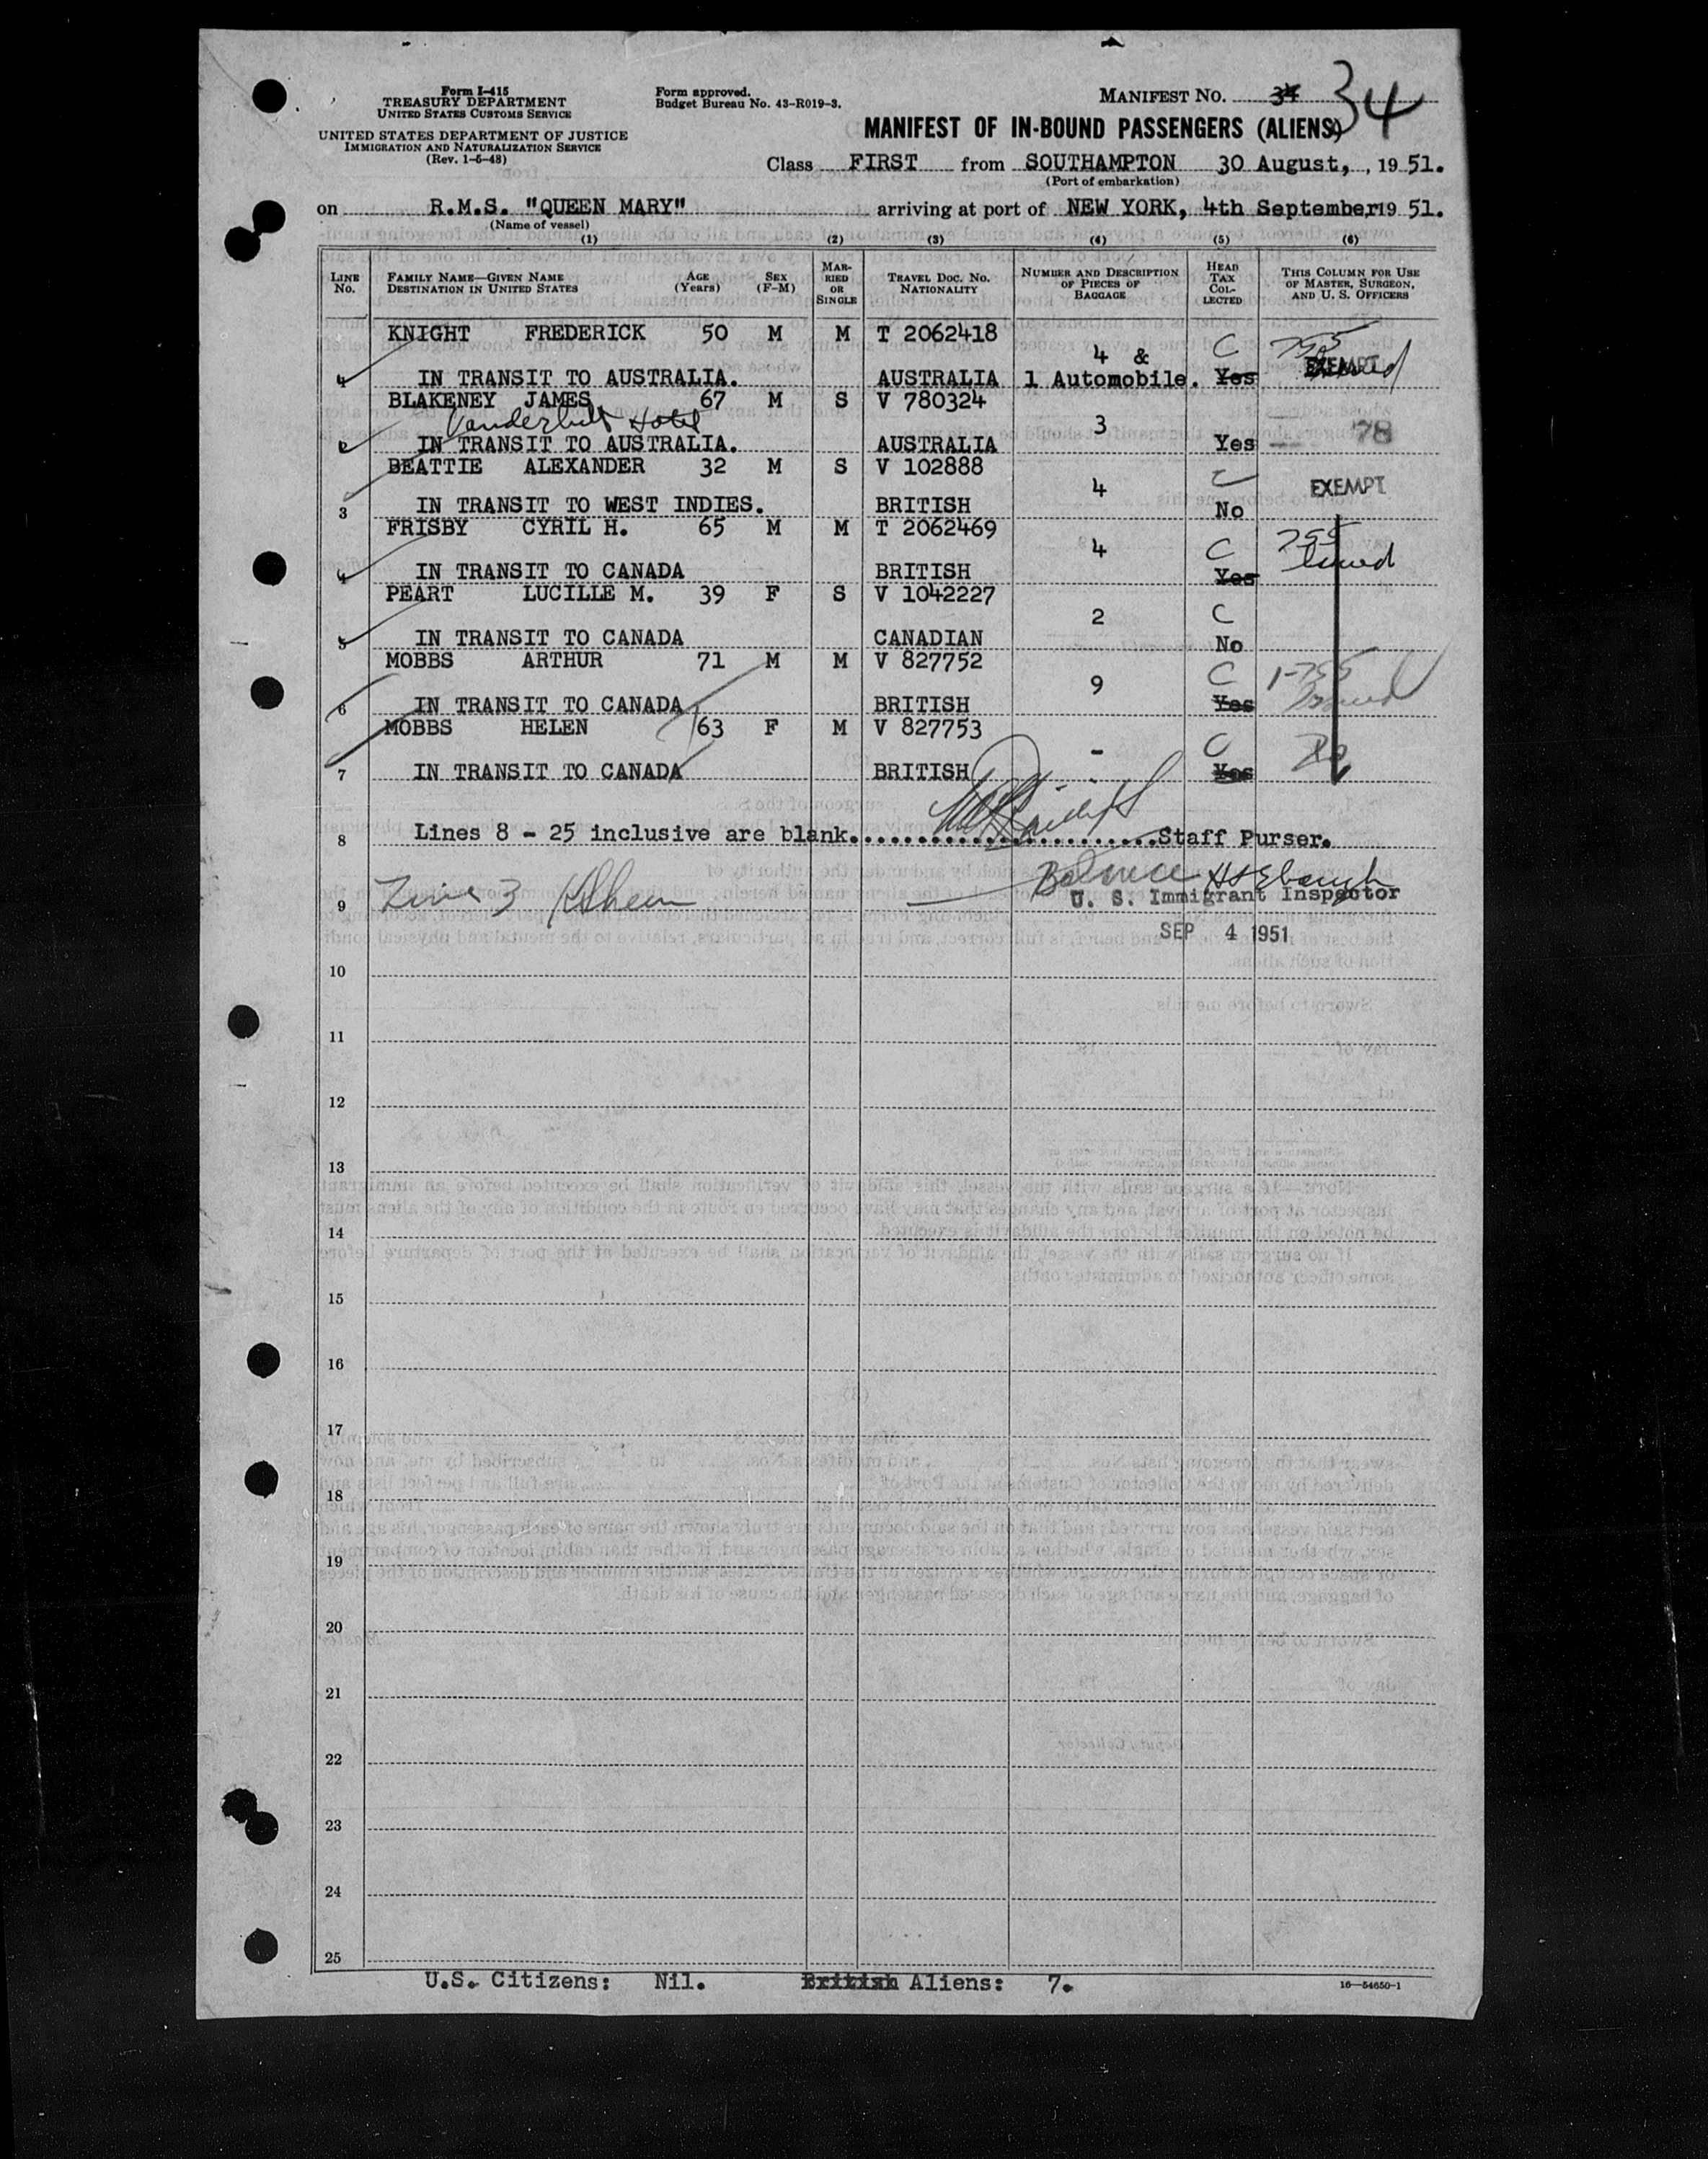 Form I-415
TREASURY DEPARTMENT
UNITED STATES CUSTOMS SERVICE
UNITED STATES DEPARTMENT OF JUSTICE
IMMIGRATION AND NATURALIZATION SERVICE
(Rev. 1-5-48)
Form approved.
Budget Bureau No. 43-R019-3.
MANIFEST NO. 34 34
MANIFEST OF IN-BOUND PASSENGERS (ALIENS)
Class FIRST from SOUTHAMPTON 30 August, , 19 51.
(Port of embarkation)
on R.M.S. "QUEEN MARY" arriving at port of NEW YORK, 4th September 19 51.
(Name of vessel)
(1) (2) (3) (4) (5) (6)
LINE NO. FAMILY NAME—GIVEN NAME DESTINATION IN UNITED STATES AGE (Years) SEX (F-M) MARRIED OR SINGLE TRAVEL DOC. NO. NATIONALITY NUMBER AND DESCRIPTION OF PIECES OF BAGGAGE HEAD TAX COLLECTED THIS COLUMN FOR USE OF MASTER, SURGEON, AND U. S. OFFICERS
KNIGHT FREDERICK 50 M M T 2062418 4 & C 755
IN TRANSIT TO AUSTRALIA. AUSTRALIA 1 Automobile. Yes EXEMPT
BLAKENEY JAMES 67 M S V 780324 3
Vanderbilt Hotel
2 IN TRANSIT TO AUSTRALIA. AUSTRALIA Yes 78
BEATTIE ALEXANDER 32 M S V 102888 4 C EXEMPT
3 IN TRANSIT TO WEST INDIES. BRITISH No
FRISBY CYRIL H. 65 M M T 2062469 4 C 755
4 IN TRANSIT TO CANADA BRITISH Yes Issued
PEART LUCILLE M. 39 F S V 1042227 2 C
5 IN TRANSIT TO CANADA CANADIAN No
MOBBS ARTHUR 71 M M V 827752 9 C 1-755
6 IN TRANSIT TO CANADA BRITISH Yes Issued
MOBBS HELEN 63 F M V 827753 - C Do
7 IN TRANSIT TO CANADA BRITISH Yes
8 Lines 8 - 25 inclusive are blank. Staff Purser.
9 Line 3
Balance
U. S. Immigrant Inspector
SEP 4 1951
10
11
12
13
14
15
16
17
18
19
20
21
22
23
24
25
U.S. Citizens: Nil. British Aliens: 7.
16—54650-1